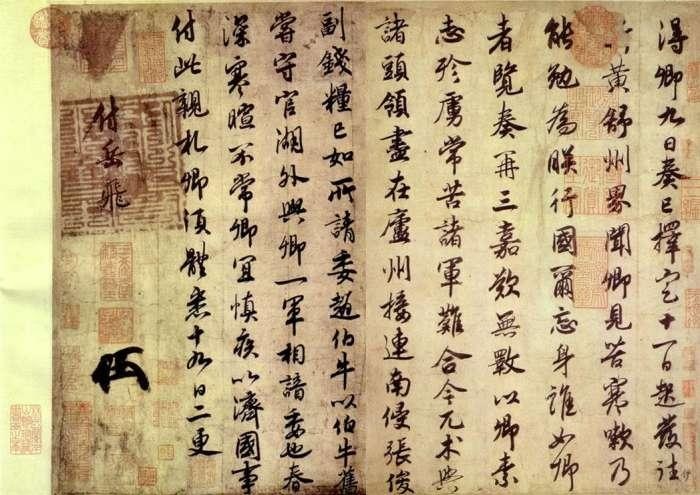 得卿九日奏已擇定十一日起發往
黃舒州界聞卿見苦寒嗽乃
能勉為朕行國爾忘身誰如卿
者覽奏再三嘉歎無斁以卿素
志殄虜常苦諸軍難合今兀朮與
諸頭領盡在廬州接連南侵張俊
副錢糧已如所請委趙伯牛以伯牛舊
嘗守官湖外與卿一軍相諳委也春
深寒暄不常卿宜慎疾以濟國事
付此親札卿須體悉十九日二更
付岳飛